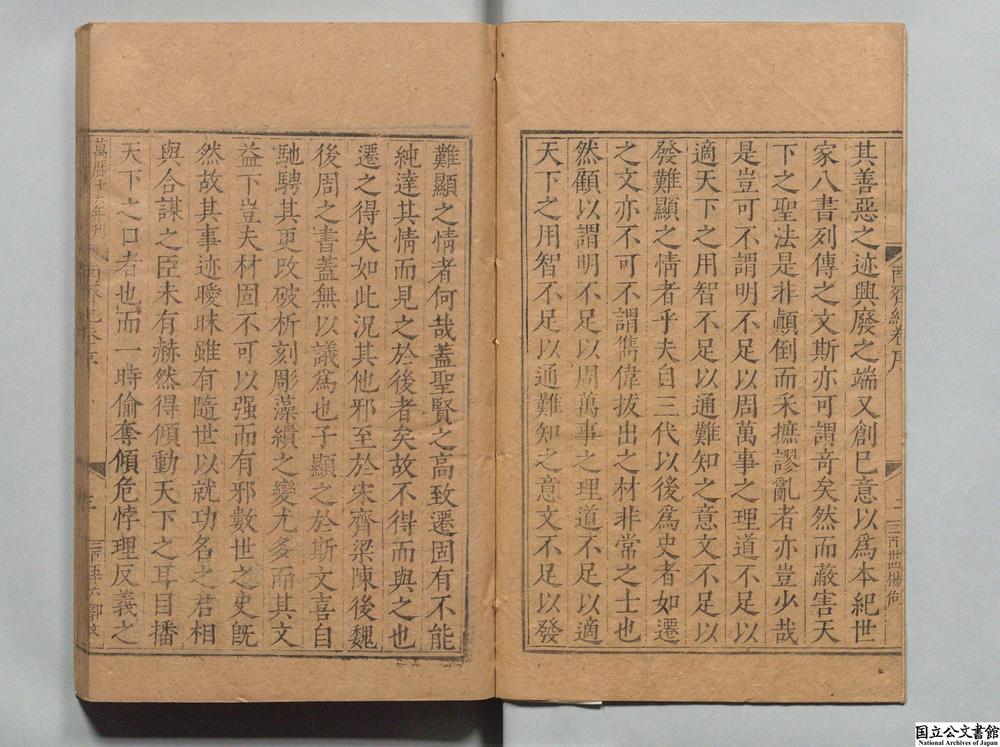 其善惡之迹興廢之端又創巳意以爲本紀世
家八書列傳之文斯亦可謂竒矣然而蔽害天
下之聖法是非顚倒而采摭謬亂者亦豈少哉
是豈可不謂明不足以周萬事之理道不足以
適天下之用智不足以通難知之意文不足以
發難顯之情者乎夫自三代以後爲史者如遷
之文亦不可不謂雋偉拔出之材非常之士也
然顧以謂明不足以周萬事之理道不足以適
天下之用智不足以通難知之意文不足以發
難顯之情者何哉蓋聖賢之高致遷固有不能
純達其情而見之於後者矣故不得而與之也
遷之得失如此況其他邪至於宋齊梁陳後魏
後周之書蓋無以議爲也子顯之於斯文喜自
馳騁其更攺破析刻彫藻繢之變尤多而其文
益下豈夫材固不可以强而有邪數世之史旣
然故其事迹曖昧雖有隨世以就功名之君相
與合謀之臣未有赫然得傾動天下之耳目播
天下之口者也而一時偷奪傾危悖理反義之
萬曆十六年刊
国立公文書館
National Archives of Japan